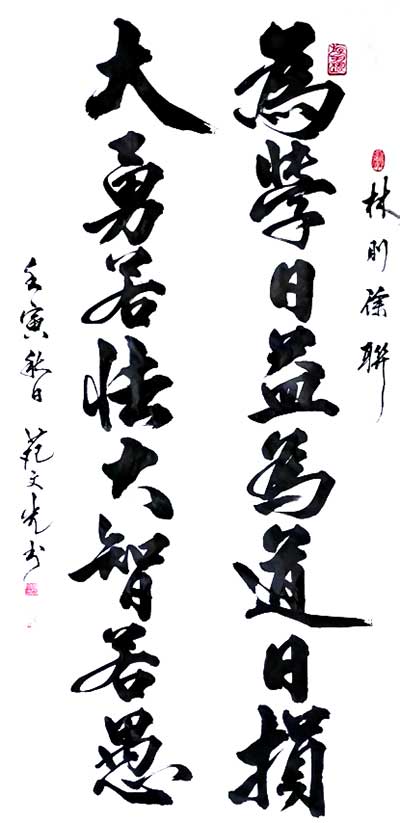 林則徐聯
為學日益為道日損
大勇若怯大智若愚
壬寅秋日范文光书